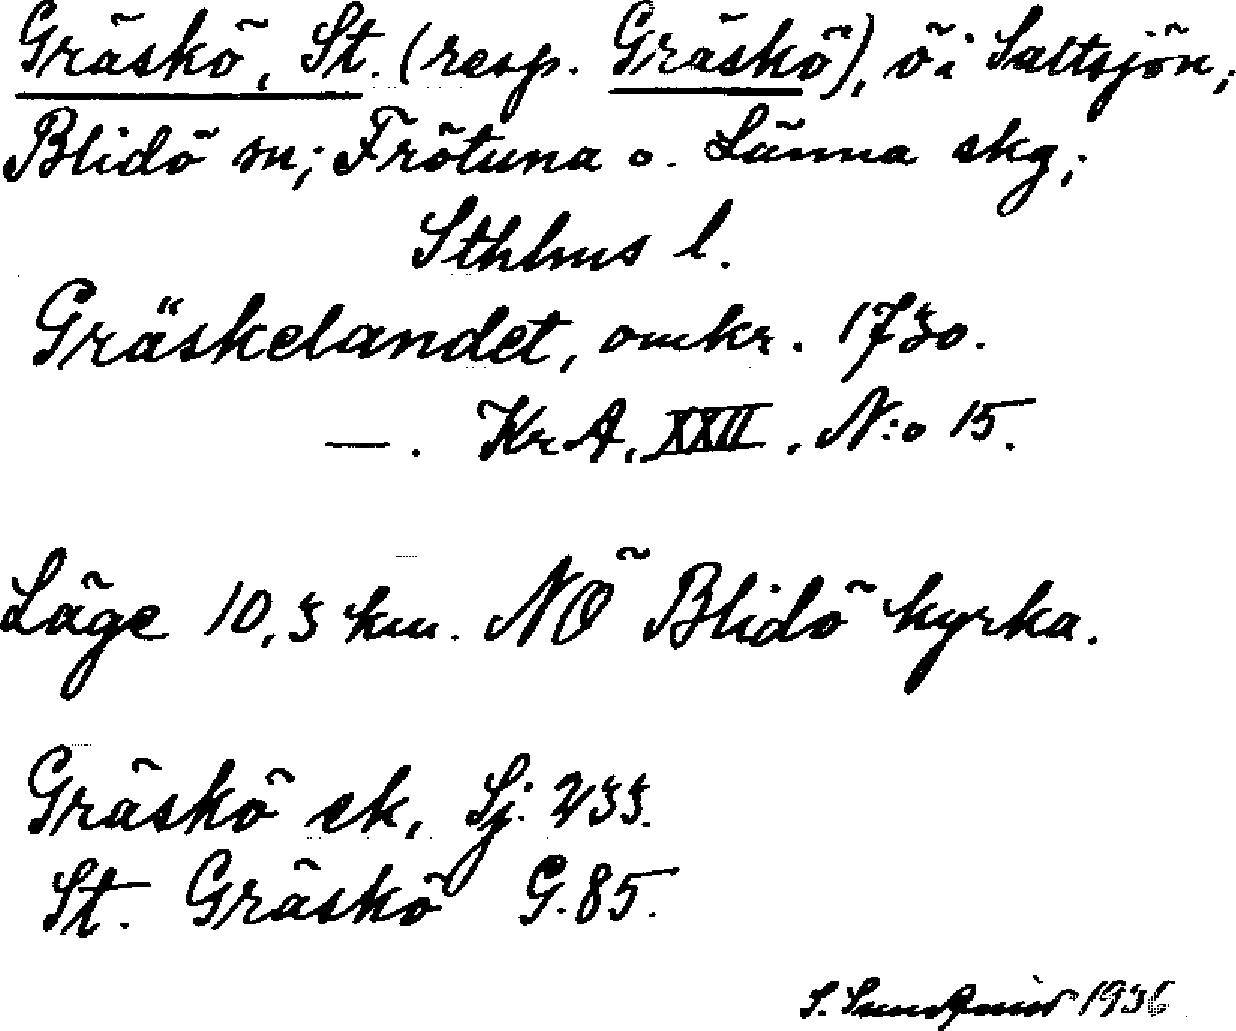 Gräskö, St. (resp. Gräskö), ö i Saltsjön,
Blidö sn; Frötuna o. Länna skg;
Sthlms l.
Gräskelandet, omkr. 1730.
—. KrA, XXII, N:o 15.
Läge 10,3 km. NÖ Blidö kyrka.
Gräskö sk, Sj. 233.
St. Gräskö G. 85.
S. 1936